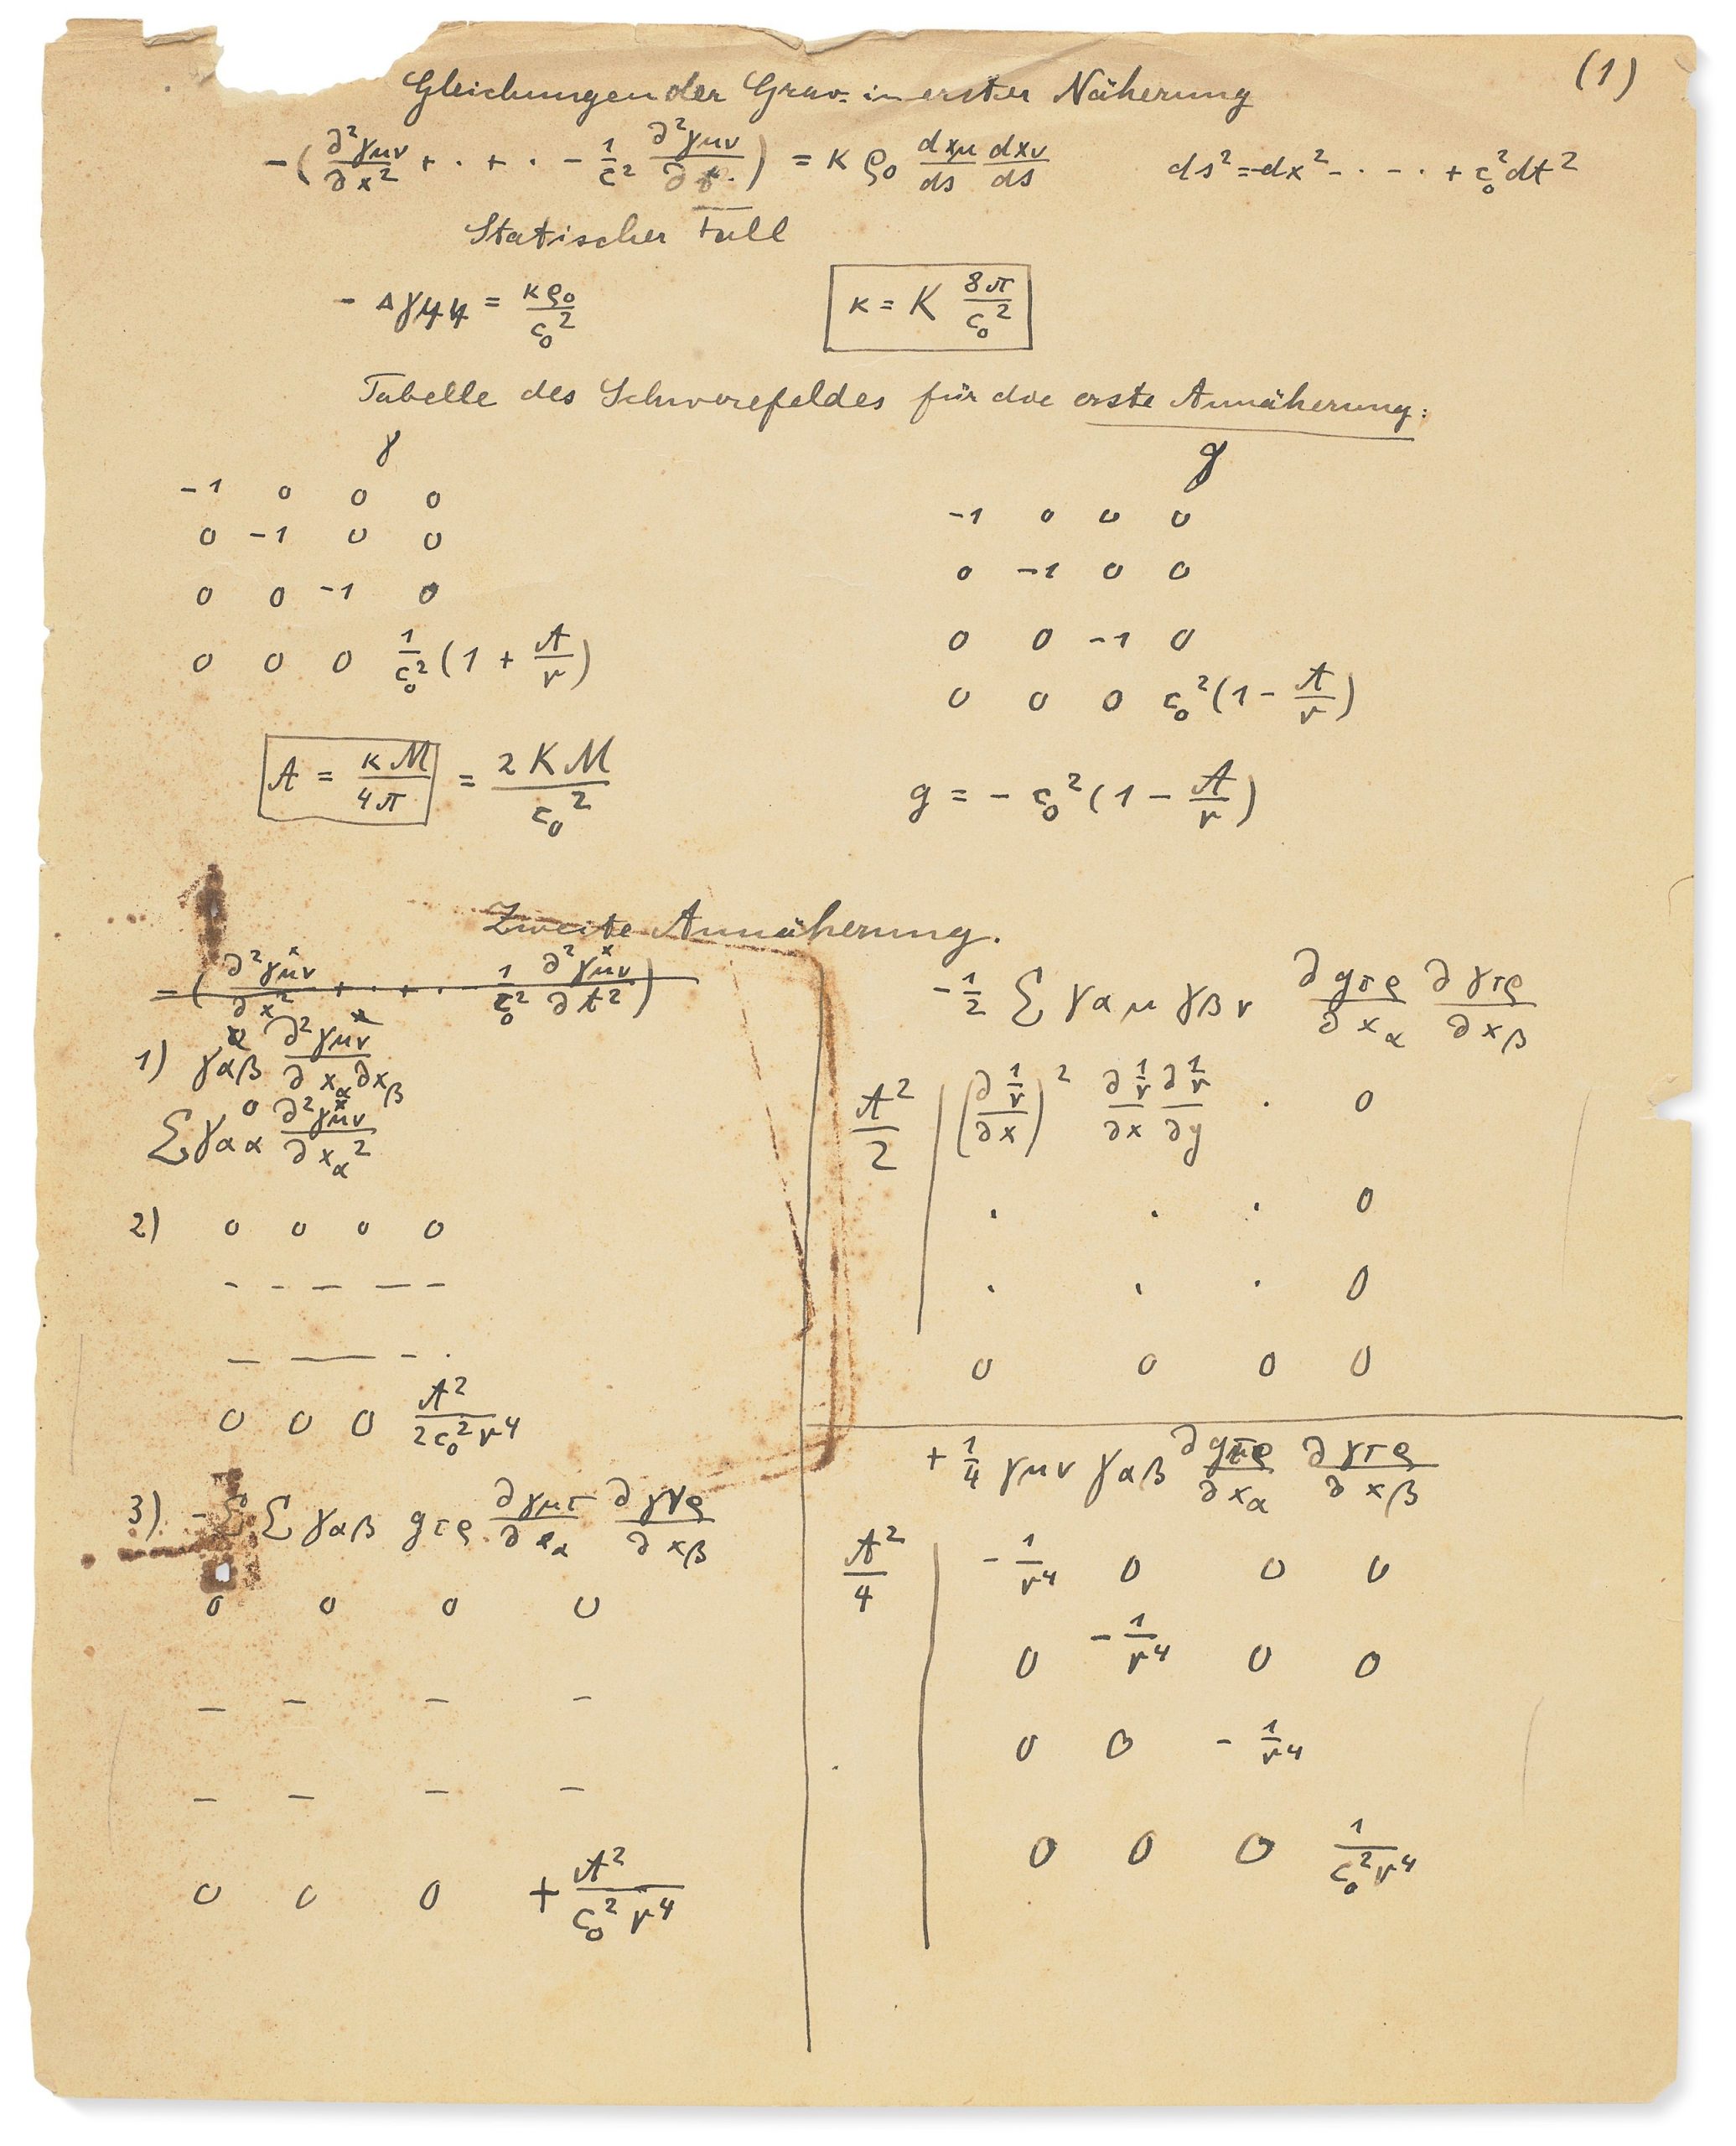 (1)
Gleichungen der Grav. in erster Näherung
-(∂²γμν/∂x² + · + · - 1/c² ∂²γμν/∂t²) = κ ρ₀ dxμ/ds dxν/ds    ds² = -dx² - · - · + c₀²dt²
Statischer Fall
- Δγ44 = κρ₀/c₀²    κ = K 8π/c₀²
Tabelle des Schwerefeldes für die erste Annäherung:
γ    g
-1 0 0 0    -1 0 0 0
0 -1 0 0    0 -1 0 0
0 0 -1 0    0 0 -1 0
0 0 0 1/c₀²(1 + A/r)    0 0 0 c₀²(1 - A/r)
A = κM/4π = 2KM/c₀²    g = - c₀²(1 - A/r)
Zweite Annäherung.
-(∂²γˣμν/∂x² + · + · - 1/c₀² ∂²γˣμν/∂t²)
1) γ⁰αβ ∂²γˣμν/∂xα∂xβ
Σγ⁰αα ∂²γˣμν/∂xα²
2) 0 0 0 0
- - - - -
- - - ·
0 0 0 A²/2c₀²r⁴
3) - Σ γαβ gτρ ∂γμτ/∂xα ∂γνρ/∂xβ
0 0 0 0
- - - -
- - - -
0 0 0 + A²/c₀²r⁴
-1/2 Σ γαμ γβν ∂gτρ/∂xα ∂γτρ/∂xβ
A²/2 | (∂1/r/∂x)² ∂1/r/∂x ∂1/r/∂y · 0
· · · 0
· · · 0
0 0 0 0
+ 1/4 γμν γαβ ∂gτρ/∂xα ∂γτρ/∂xβ
A²/4 | -1/r⁴ 0 0 0
0 -1/r⁴ 0 0
0 0 -1/r⁴
0 0 0 1/c₀²r⁴